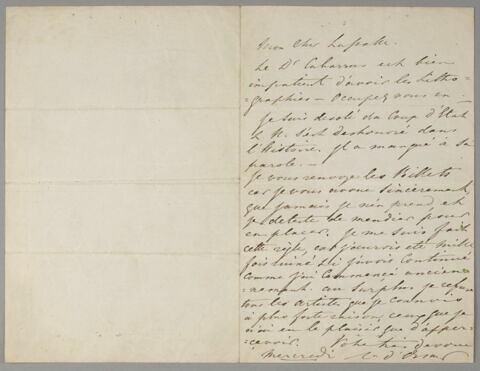 Mon cher Lafratte.
Le Dr Cabarrus est bien
impatient d'avoir les Litho=
=graphies — Occupez vous en —
Je suis désolé du Coup d'Etat
L. N. s'est deshonoré dans
l'Histoire. Il a manqué à sa
parole. —
Je vous renvoye les Billets
car je vous avoue sincèrement,
que jamais je n'en prend, et
je deteste de mendier pour
en placer. Je me suis fait
cette règle, car j'aurois été mille
fois ruiné si j'avois continué
comme j'ai commencé ancien=
=nement. au surplus je refuse
tous les artistes que je connois
à plus forte raison, ceux que je
n'ai eu le plaisir que d'apper=
=cevoir. Votre très devoué
Mercredi C. d'Orsay